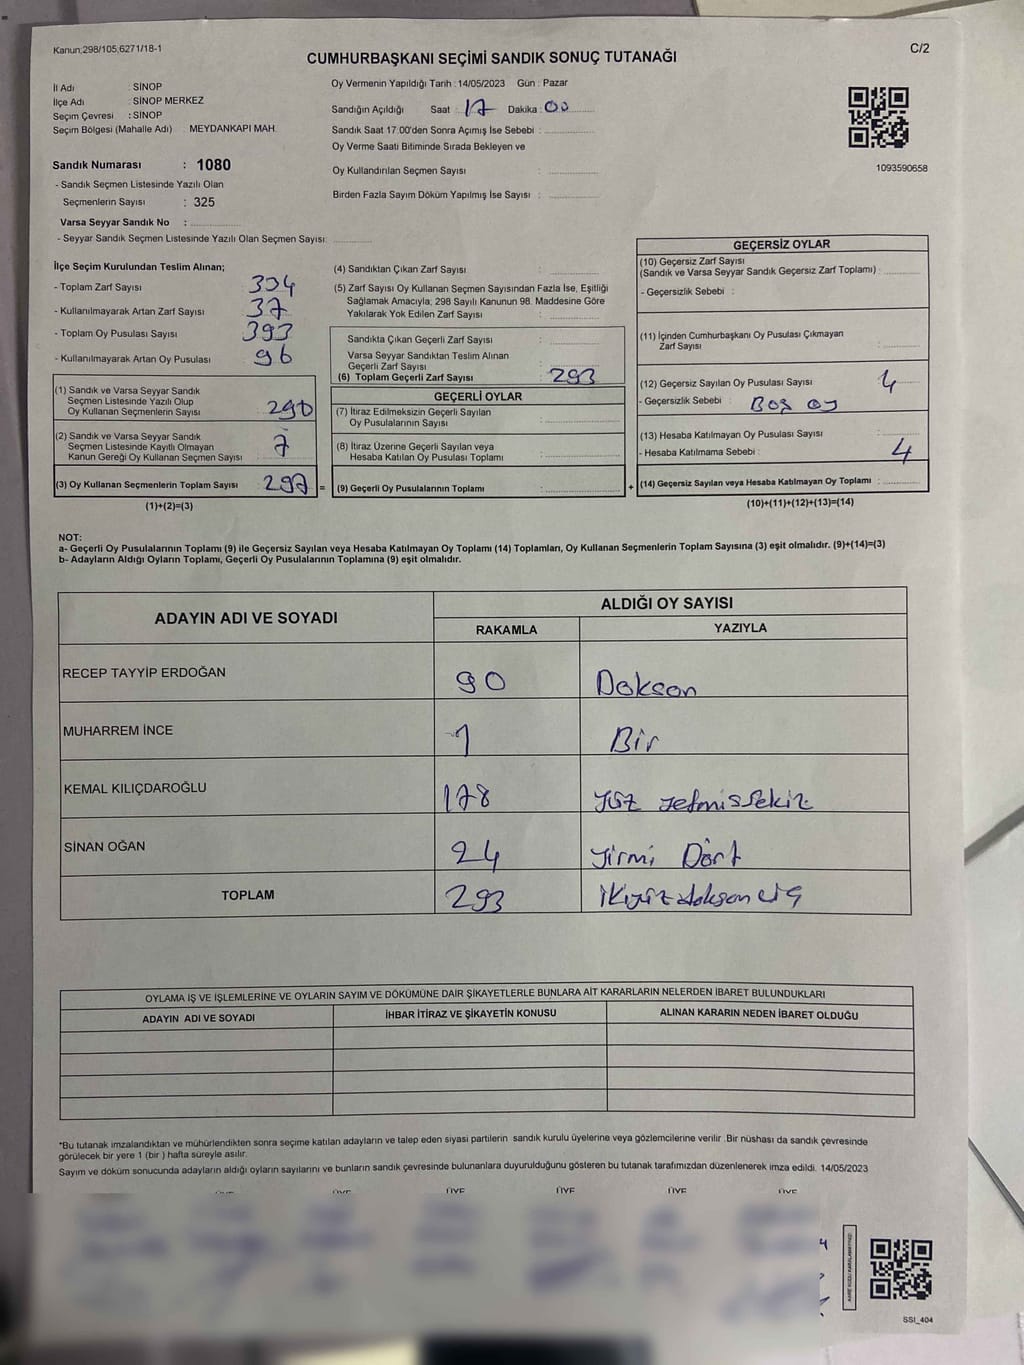 Kanun;298/105,6271/18-1
C/2
CUMHURBAŞKANI SEÇİMİ SANDIK SONUÇ TUTANAĞI
İl Adı : SİNOP
İlçe Adı : SİNOP MERKEZ
Seçim Çevresi : SİNOP
Seçim Bölgesi (Mahalle Adı) : MEYDANKAPI MAH.
Sandık Numarası : 1080
- Sandık Seçmen Listesinde Yazılı Olan
Seçmenlerin Sayısı : 325
Varsa Seyyar Sandık No :
- Seyyar Sandık Seçmen Listesinde Yazılı Olan Seçmen Sayısı:
Oy Vermenin Yapıldığı Tarih : 14/05/2023 Gün : Pazar
Sandığın Açıldığı Saat : 17 Dakika : 00
Sandık Saat 17.00'den Sonra Açımış İse Sebebi :
Oy Verme Saati Bitiminde Sırada Bekleyen ve
Oy Kullandırılan Seçmen Sayısı :
Birden Fazla Sayım Döküm Yapılmış İse Sayısı :
1093590658
İlçe Seçim Kurulundan Teslim Alınan;
- Toplam Zarf Sayısı 334
- Kullanılmayarak Artan Zarf Sayısı 37
- Toplam Oy Pusulası Sayısı 393
- Kullanılmayarak Artan Oy Pusulası 96
(1) Sandık ve Varsa Seyyar Sandık
Seçmen Listesinde Yazılı Olup
Oy Kullanan Seçmenlerin Sayısı 290
(2) Sandık ve Varsa Seyyar Sandık
Seçmen Listesinde Kayıtlı Olmayan
Kanun Gereği Oy Kullanan Seçmen Sayısı : 7
(3) Oy Kullanan Seçmenlerin Toplam Sayısı : 297 =
(1)+(2)=(3)
(4) Sandıktan Çıkan Zarf Sayısı :
(5) Zarf Sayısı Oy Kullanan Seçmen Sayısından Fazla İse, Eşitliği
Sağlamak Amacıyla; 298 Sayılı Kanunun 98. Maddesine Göre
Yakılarak Yok Edilen Zarf Sayısı :
Sandıkta Çıkan Geçerli Zarf Sayısı :
Varsa Seyyar Sandıktan Teslim Alınan
Geçerli Zarf Sayısı :
(6) Toplam Geçerli Zarf Sayısı : 293
GEÇERLİ OYLAR
(7) İtiraz Edilmeksizin Geçerli Sayılan
Oy Pusulalarının Sayısı :
(8) İtiraz Üzerine Geçerli Sayılan veya
Hesaba Katılan Oy Pusulası Toplamı :
(9) Geçerli Oy Pusulalarının Toplamı : +
GEÇERSİZ OYLAR
(10) Geçersiz Zarf Sayısı
(Sandık ve Varsa Seyyar Sandık Geçersiz Zarf Toplamı) :
- Geçersizlik Sebebi :
(11) İçinden Cumhurbaşkanı Oy Pusulası Çıkmayan
Zarf Sayısı :
(12) Geçersiz Sayılan Oy Pusulası Sayısı : 4
- Geçersizlik Sebebi : Boş oy
(13) Hesaba Katılmayan Oy Pusulası Sayısı :
- Hesaba Katılmama Sebebi : 4
(14) Geçersiz Sayılan veya Hesaba Katılmayan Oy Toplamı :
(10)+(11)+(12)+(13)=(14)
NOT:
a- Geçerli Oy Pusulalarının Toplamı (9) ile Geçersiz Sayılan veya Hesaba Katılmayan Oy Toplamı (14) Toplamları, Oy Kullanan Seçmenlerin Toplam Sayısına (3) eşit olmalıdır. (9)+(14)=(3)
b- Adayların Aldığı Oyların Toplamı, Geçerli Oy Pusulalarının Toplamına (9) eşit olmalıdır.
ADAYIN ADI VE SOYADI
ALDIĞI OY SAYISI
RAKAMLA YAZIYLA
RECEP TAYYİP ERDOĞAN 90 Doksan
MUHARREM İNCE 1 Bir
KEMAL KILIÇDAROĞLU 178 Yüz yetmişsekiz
SİNAN OĞAN 24 Yirmi Dört
TOPLAM 293 İkiyüzdoksan üç
OYLAMA İŞ VE İŞLEMLERİNE VE OYLARIN SAYIM VE DÖKÜMÜNE DAİR ŞİKAYETLERLE BUNLARA AİT KARARLARIN NELERDEN İBARET BULUNDUKLARI
ADAYIN ADI VE SOYADI İHBAR İTİRAZ VE ŞİKAYETİN KONUSU ALINAN KARARIN NEDEN İBARET OLDUĞU
*Bu tutanak imzalandıktan ve mühürlendikten sonra seçime katılan adayların ve talep eden siyasi partilerin sandık kurulu üyelerine veya gözlemcilerine verilir. Bir nüshası da sandık çevresinde
görülecek bir yere 1 (bir ) hafta süreyle asılır.
Sayım ve döküm sonucunda adayların aldığı oyların sayılarını ve bunların sandık çevresinde bulunanlara duyurulduğunu gösteren bu tutanak tarafımızdan düzenlenerek imza edildi. 14/05/2023
ÜYE ÜYE ÜYE ÜYE ÜYE
SSI_404